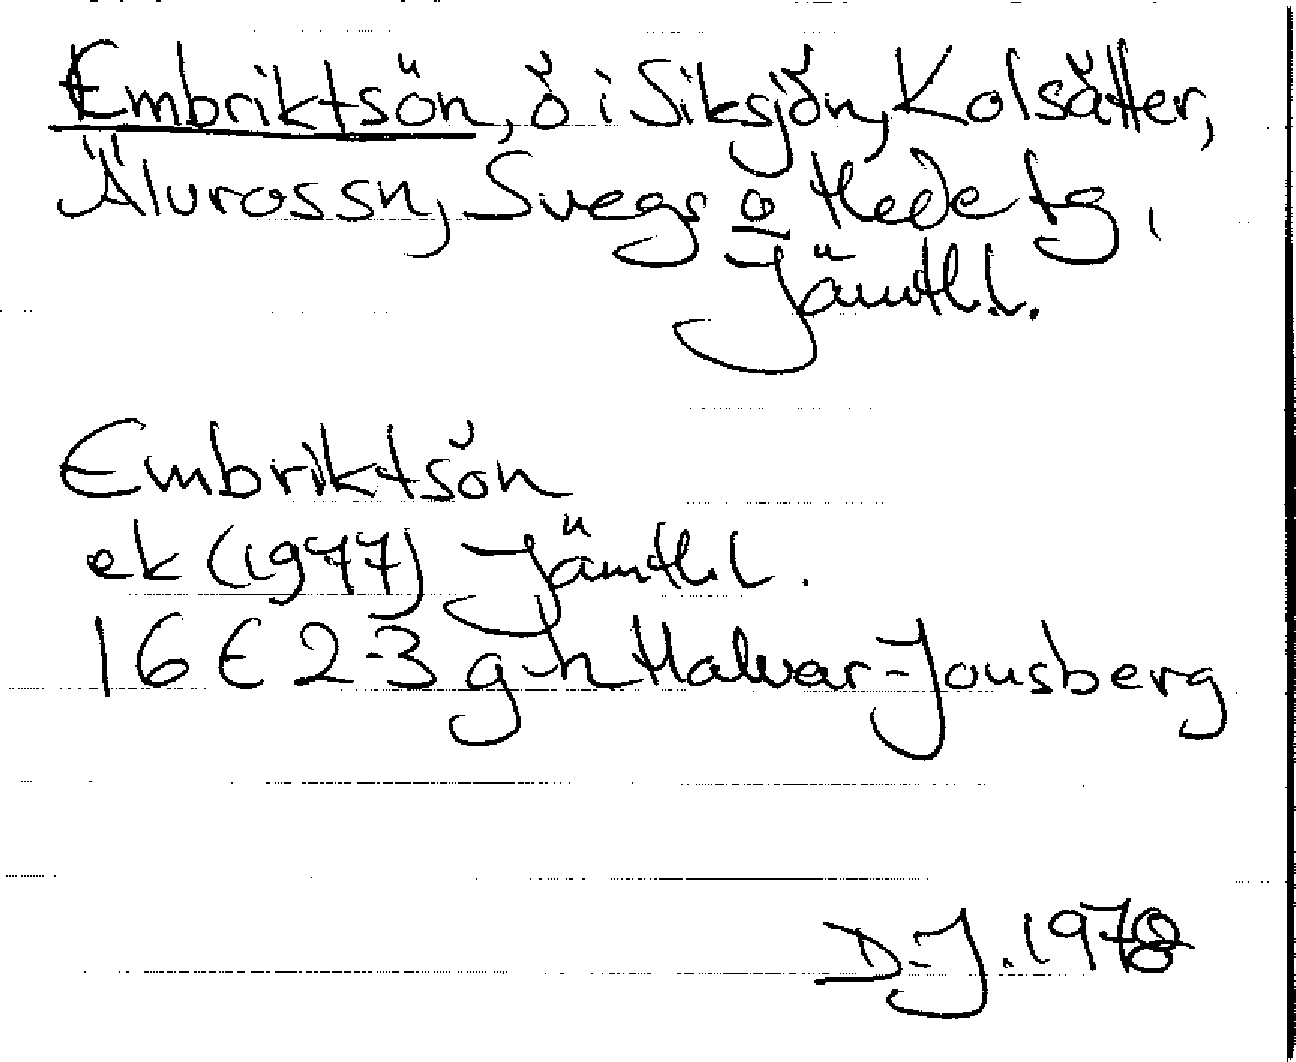 Embriktsön, ö i Siksjön, Kolsätter,
Älvrossn, Svegs o Hede tg,
Jämtl.l.
Embriktsön
ek (1977) Jämtl.l.
16 E 2-3 g-h Halvar-Jonsberg
D-J. 1978